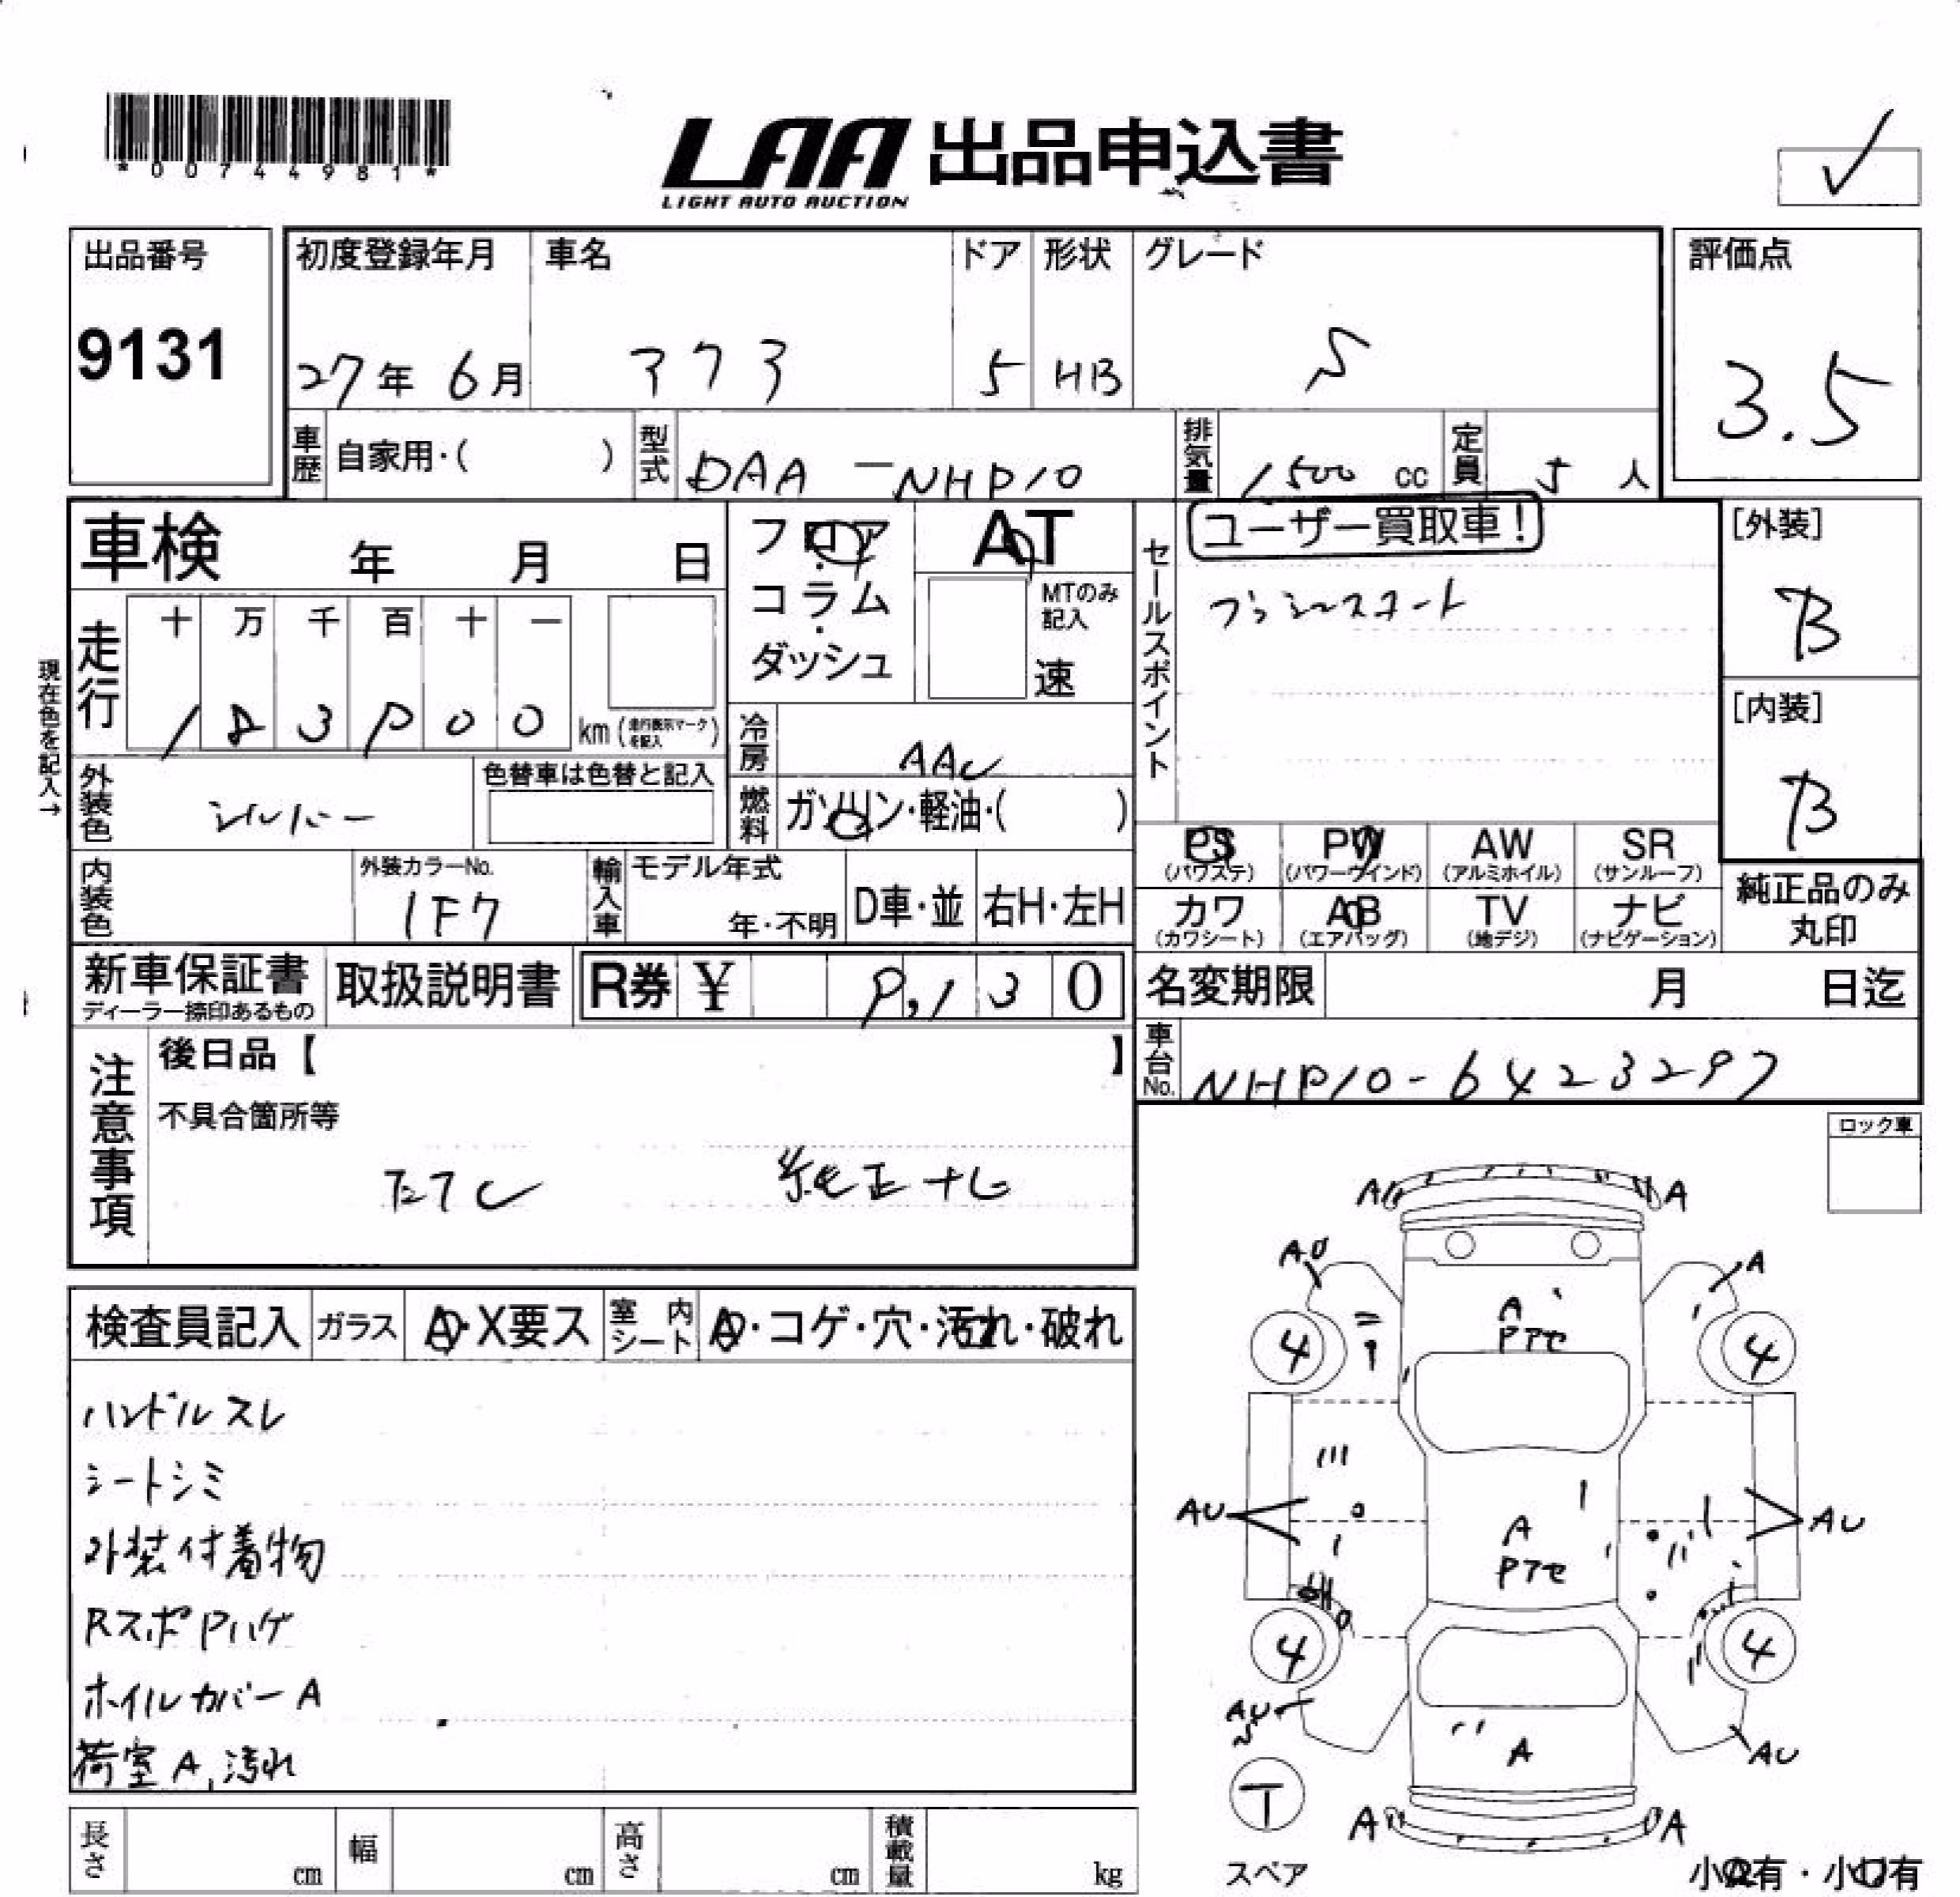 *00744981*
LAA 出品申込書
LIGHT AUTO AUCTION
出品番号
9131
初度登録年月
27年 6月
車名
アクア
ドア
5
形状
HB
グレード
S
評価点
3.5
車歴 自家用・( )
型式 DAA-NHP10
排気量 1500 cc
定員 5 人
車検 年 月 日
フロア・コラム・ダッシュ
AT
MTのみ記入
速
セールスポイント
ユーザー買取車!
プッシュスタート
[外装]
B
[内装]
B
現在色を記入→
走行
十 万 千 百 十 一
km (走行表示マークを記入)
外装色 シルバー
色替車は色替と記入
冷房 AAC
燃料 ガソリン・軽油・( )
内装色
外装カラーNo.
1F7
輸入車
モデル年式
年・不明
D車・並
右H・左H
PS (パワステ)
PW (パワーウインド)
AW (アルミホイル)
SR (サンルーフ)
カワ (カワシート)
AB (エアバッグ)
TV (地デジ)
ナビ (ナビゲーション)
純正品のみ丸印
新車保証書
ディーラー捺印あるもの
取扱説明書
R券 ¥ 9,130
名変期限 月 日迄
車台No. NHP10-6423297
注意事項
後日品【 】
不具合箇所等
純正ナビ
ロック車
検査員記入
ガラス A・X要ス
室内シート A・コゲ・穴・汚れ・破れ
ハンドルスレ
シートシミ
外装付着物
RスポPハゲ
ホイルカバーA
荷室A,汚れ
A A
AU A
A
Pアセ
4 4
AU AU
A
Pアセ
4 4
AU
S
A
AU
T
スペア
A A
小A有・小U有
長さ cm
幅 cm
高さ cm
積載量 kg